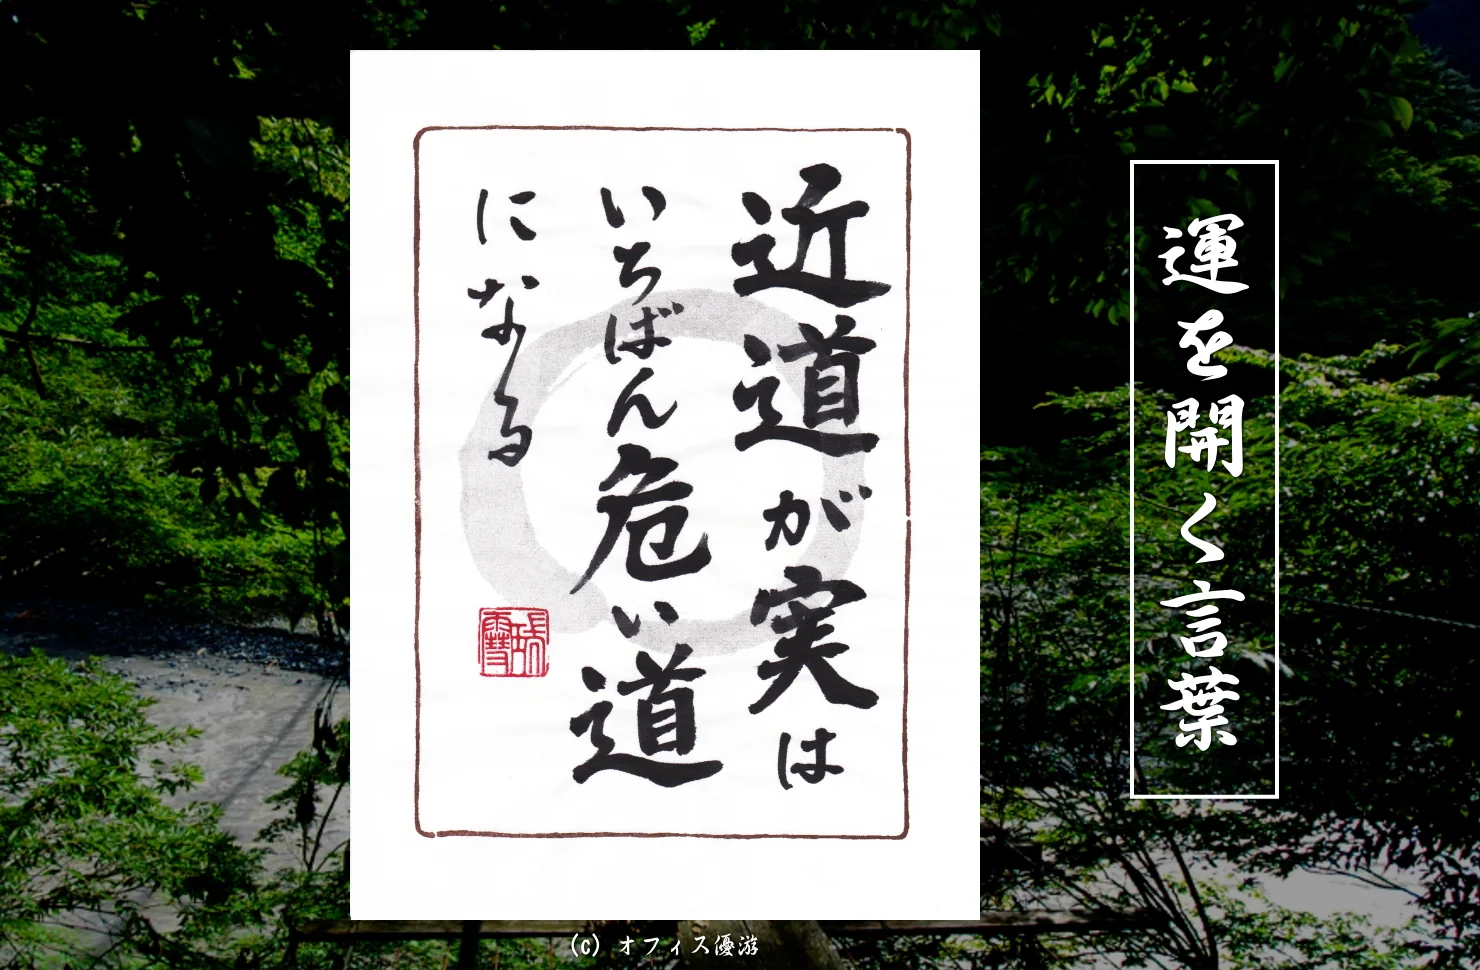 運を開く言葉
近道が実は
いちばん危い道
になる
(c) オフィス優游